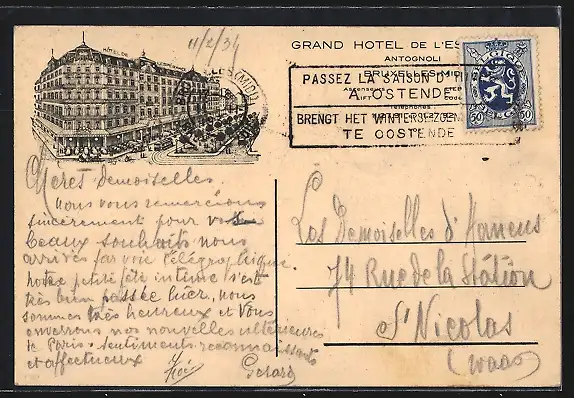 11/2/34
HOTEL DE
GRAND HOTEL DE L'ES
ANTOGNOLI
BRUXELLES-MIDI
PASSEZ LA SAISON D'
A OSTENDE
BRENGT HET WINTERSEIZOEN
TE OOSTENDE
BELGIQUE
50 50
BELGIE
demoiselles.
Nous vous remercions
sincèrement pour vos
beaux souhaits nous
arrivés par voie télégraphique.
notre petite fête intime s'est
très bien passée hier, nous
sommes très heureux et vous
enverrons nos nouvelles ultérieures
de Paris. sentiments reconnaissants
et affectueux
Gérard
Les Demoiselles d'
74 Rue de la Station
St Nicolas
(Waas)